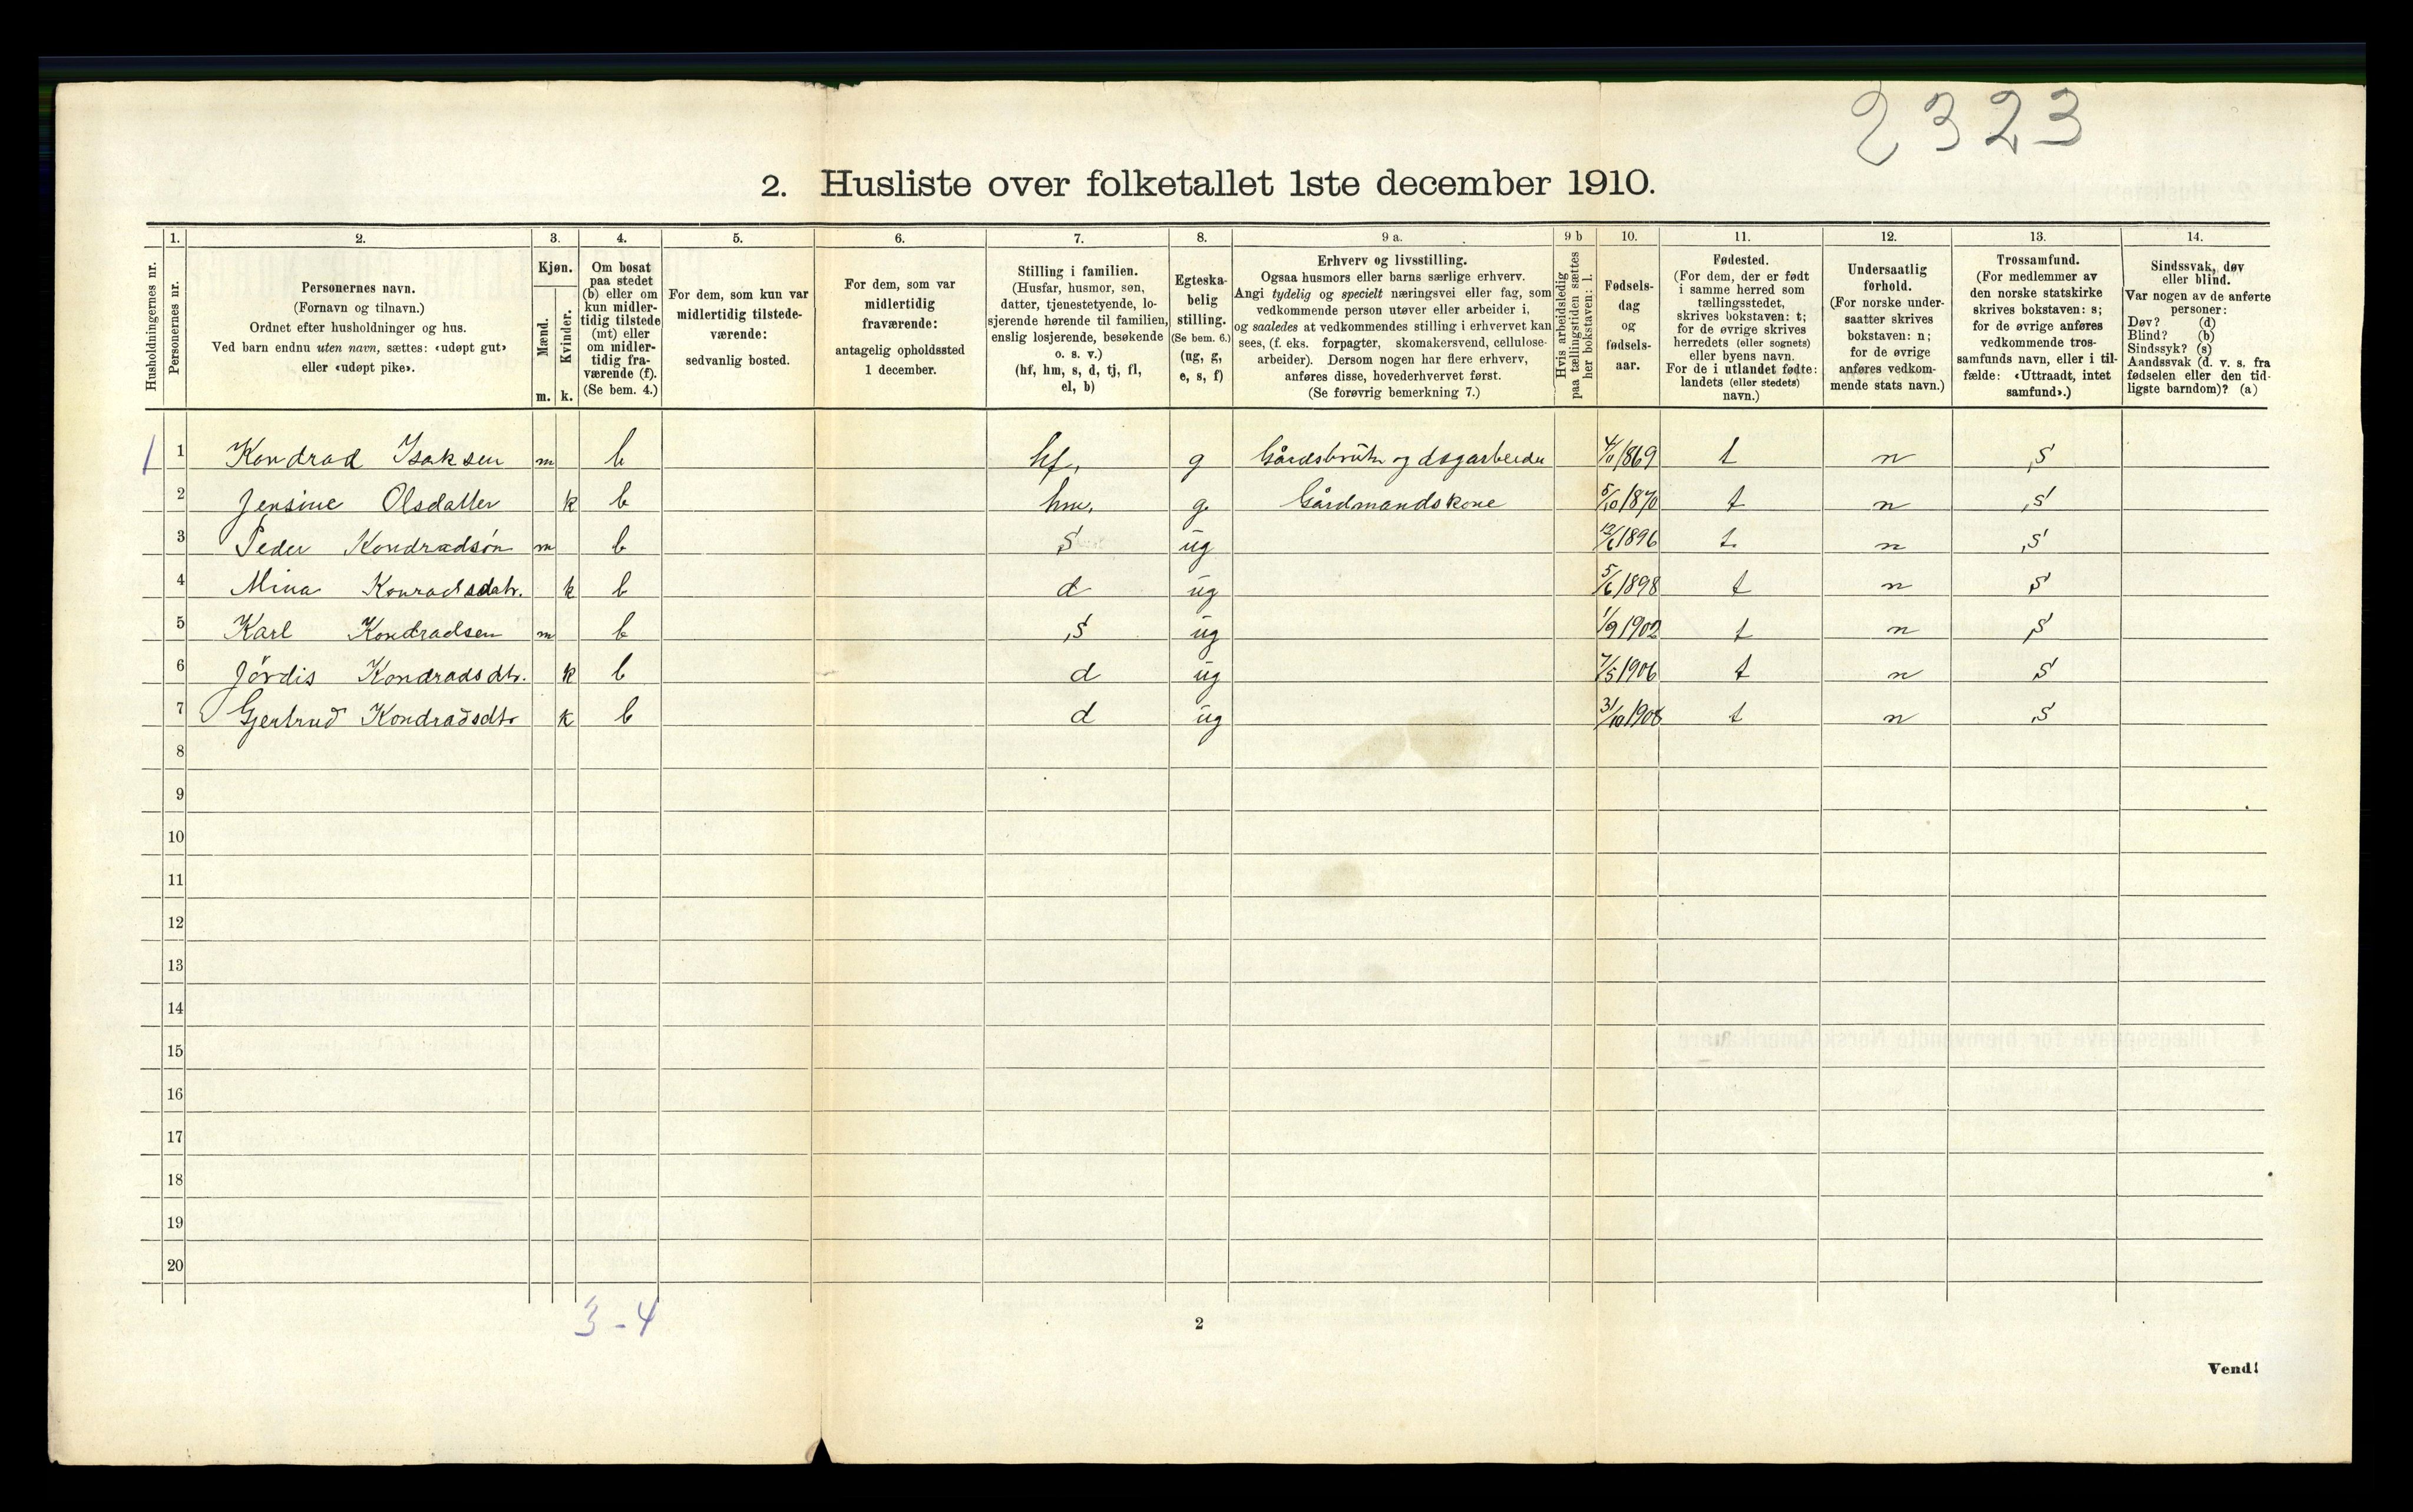 2323
2. Husliste over folketallet 1ste december 1910.
Husholdningernes nr.
1. Personernes nr.
2. Personernes navn.
(Fornavn og tilnavn.)
Ordnet efter husholdninger og hus.
Ved barn endnu uten navn, sættes: «udøpt gut»
eller «udøpt pike».
3. Kjøn.
Mænd. Kvinder.
m. k.
4. Om bosat
paa stedet
(b) eller om
kun midler-
tidig tilstede
(mt) eller
om midler-
tidig fra-
værende (f).
(Se bem. 4.)
5. For dem, som kun var
midlertidig tilstede-
værende:
sedvanlig bosted.
6. For dem, som var
midlertidig
fraværende:
antagelig opholdssted
1 december.
7. Stilling i familien.
(Husfar, husmor, søn,
datter, tjenestetyende, lo-
sjerende hørende til familien,
enslig losjerende, besøkende
o. s. v.)
(hf, hm, s, d, tj, fl,
el, b)
8. Egteska-
belig
stilling.
(Se bem. 6.)
(ug, g,
e, s, f)
9 a. Erhverv og livsstilling.
Ogsaa husmors eller barns særlige erhverv.
Angi tydelig og specielt næringsvei eller fag, som
vedkommende person utøver eller arbeider i,
og saaledes at vedkommendes stilling i erhvervet kan
sees, (f. eks. forpagter, skomakersvend, cellulose-
arbeider). Dersom nogen har flere erhverv,
anføres disse, hovederhvervet først.
(Se forøvrig bemerkning 7.)
9 b Hvis arbeidsledig
paa tællingstiden sættes
her bokstaven: l.
10. Fødsels-
dag
og
fødsels-
aar.
11. Fødested.
(For dem, der er født
i samme herred som
tællingsstedet,
skrives bokstaven: t;
for de øvrige skrives
herredets (eller sognets)
eller byens navn.
For de i utlandet fødte:
landets (eller stedets)
navn.)
12. Undersaatlig
forhold.
(For norske under-
saatter skrives
bokstaven: n;
for de øvrige
anføres vedkom-
mende stats navn.)
13. Trossamfund.
(For medlemmer av
den norske statskirke
skrives bokstaven: s;
for de øvrige anføres
vedkommende tros-
samfunds navn, eller i til-
fælde: «Uttraadt, intet
samfund».)
14. Sindssvak, døv
eller blind.
Var nogen av de anførte
personer:
Døv? (d)
Blind? (b)
Sindssyk? (s)
Aandssvak (d. v. s. fra
fødselen eller den tid-
ligste barndom)? (a)
1 1 Kondrad Isaksen m b hf, g Gårdsbruker og dagarbeider 4/11 1869 t n s
2 Jensine Olsdatter k b hm, g. Gårdmandskone 5/10 1870 t n s
3 Peder Kondradsøn m b s ug 12/6 1896 t. n s
4 Mina Konradsdatr. k b d ug 5/6 1898 t n s
5 Karl Kondradsen m b s ug 1/9 1902 t n s
6 Jördis Kondradsdtr. k b d ug 7/5 1906 t n s
7 Gjertrud Kondradsdtr k b d ug 31/10 1908 t n s
8
9
10
11
12
13
14
15
16
17
18
19
20
3-4
2
Vend!